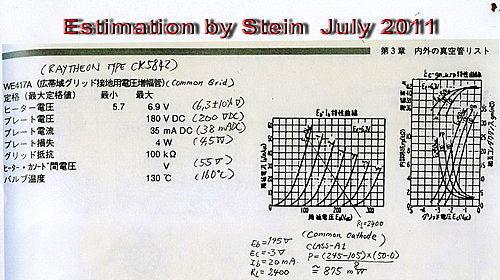 Estimation by Stein July 2011
第3章 内外の真空管リスト
(RAYTHEON TYPE CK5842)
WE417A (広帯域グリッド接地用電圧増幅管) (Common Grid)
定格 (最大定格値) 最小 最大
ヒーター電圧 5.7 6.9 V (6,3±10%V)
プレート電圧 180 V DC (200 VDC)
プレート電流 35 mA DC (38 mADC)
プレート損失 4 W (4,5W)
グリッド抵抗 100 kΩ
ヒーター・カソード間電圧 V (55V)
バルブ温度 130 ℃ (160℃)
特性曲線
RL=2400
グリッド電圧
(Common Cathode)
CLASS-A1
Eb=195V
Ec=-3V
Ib=20mA
RL=2400
P=(245-105)×(50-0)
8
≒875mW